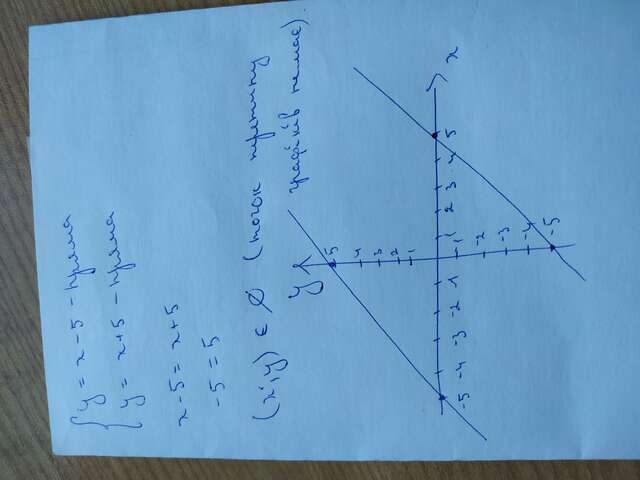 { y = x - 5 - пряма
y = x + 5 - пряма
x - 5 = x + 5
- 5 = 5
(x; y) ∈ ∅ (точок перетину
графіків немає).
y
5
4
3
2
1
-5 -4 -3 -2 1 1 2 3 4 5 x
-1
-2
-3
-4
-5